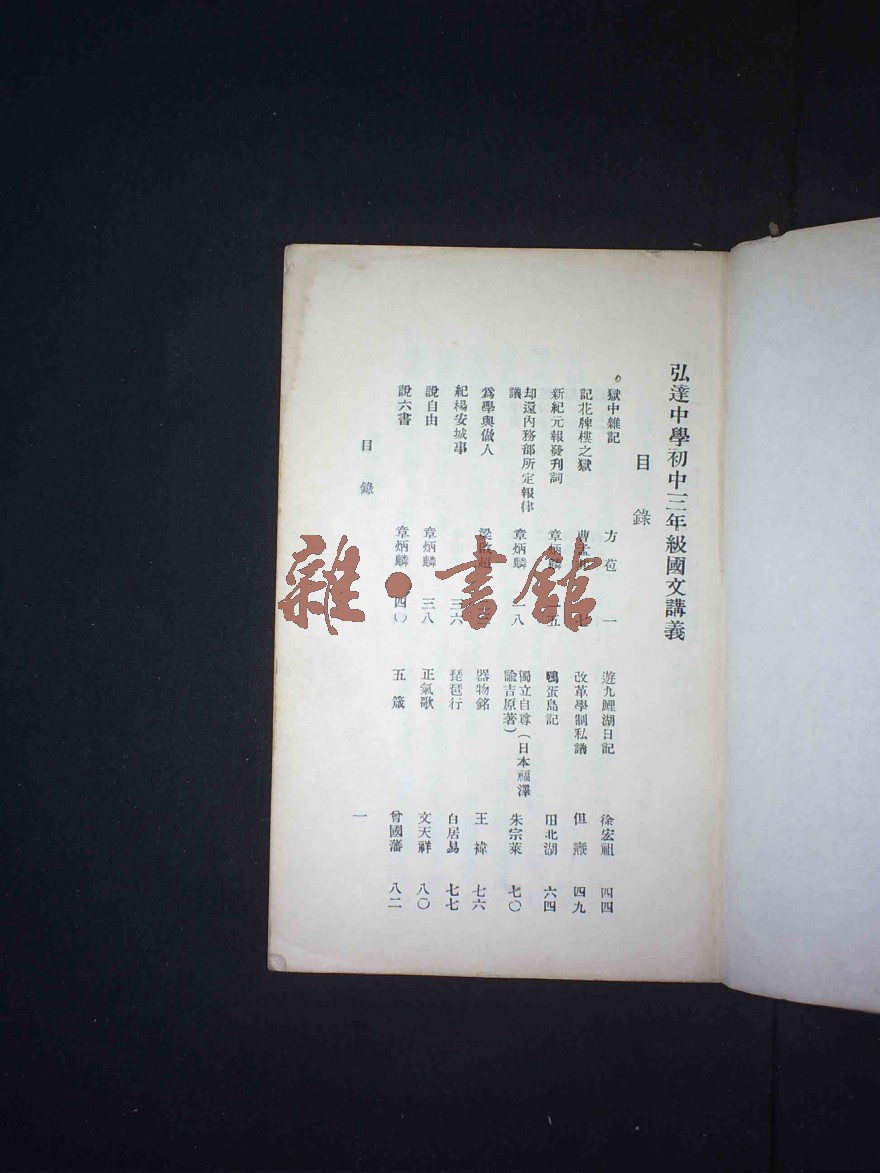 弘達中學初中三年級國文講義
目錄
獄中雜記 方苞 一
記花牌樓之獄
新紀元報發刊詞 章炳麟 一五
却還內務部所定報律議 章炳麟 一八
為學與做人 梁啟超
紀楊安城事 三六
說自由 章炳麟 三八
說六書 章炳麟 四〇
遊九鯉湖日記 徐宏祖 四四
改革學制私議 但燾 四九
鴨蛋島記 田北湖 六四
獨立自尊（日本福澤諭吉原著） 朱宗萊 七〇
器物銘 王褘 七六
琵琶行 白居易 七七
正氣歌 文天祥 八〇
五箴 曾國藩 八二
目錄 一
雜·書館